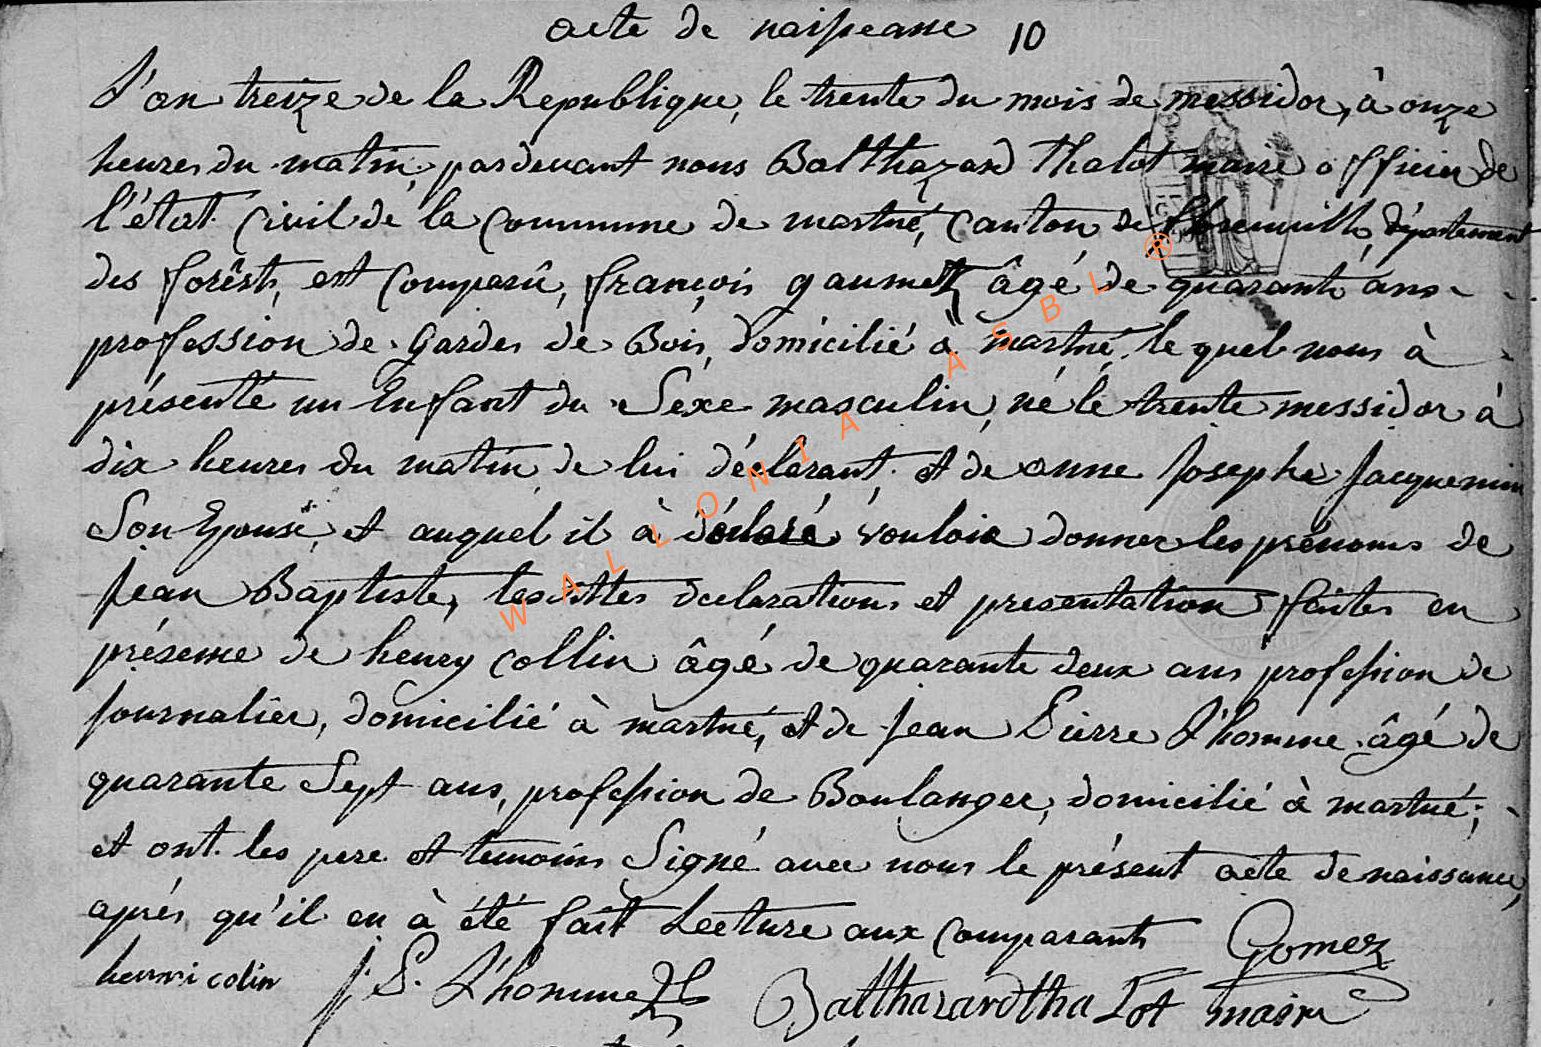 acte de naissance 10
L'an treize de la Republique, le trente du mois de messidor, à onze
heures du matin, pardevant nous Balthazard Thalot maire officier de
l'état Civil de la Commune de martué, Canton de florenville, département
des forêsts, est comparû, françois gaumez âgé de quarante ans
profession de Gardes de Bois, domicilié à martué, le quel nous à
présenté un Enfant du Sexe masculin, né le trente messidor à
dix heures du matin de lui déclarant, et de anne Josephe Jacquemin
Son Epouse, et auquel il à déclaré vouloir donner les prénoms de
Jean Baptiste, lesdittes declarations et presentation faites en
présence de henry collin âgé de quarante deux ans profession de
Journalier, domicilié à martué, et de Jean Pierre L'homme âgé de
quarante Sept ans, profession de Boulanger, domicilié à martué;
et ont les pere et temoins Signé avec nous le présent acte de naissance,
après qu'il en à été fait Lecture aux comparants Gomez
henri colin J. P. L'homme Balthazard thalot maire
WALLONIA ASBL ®